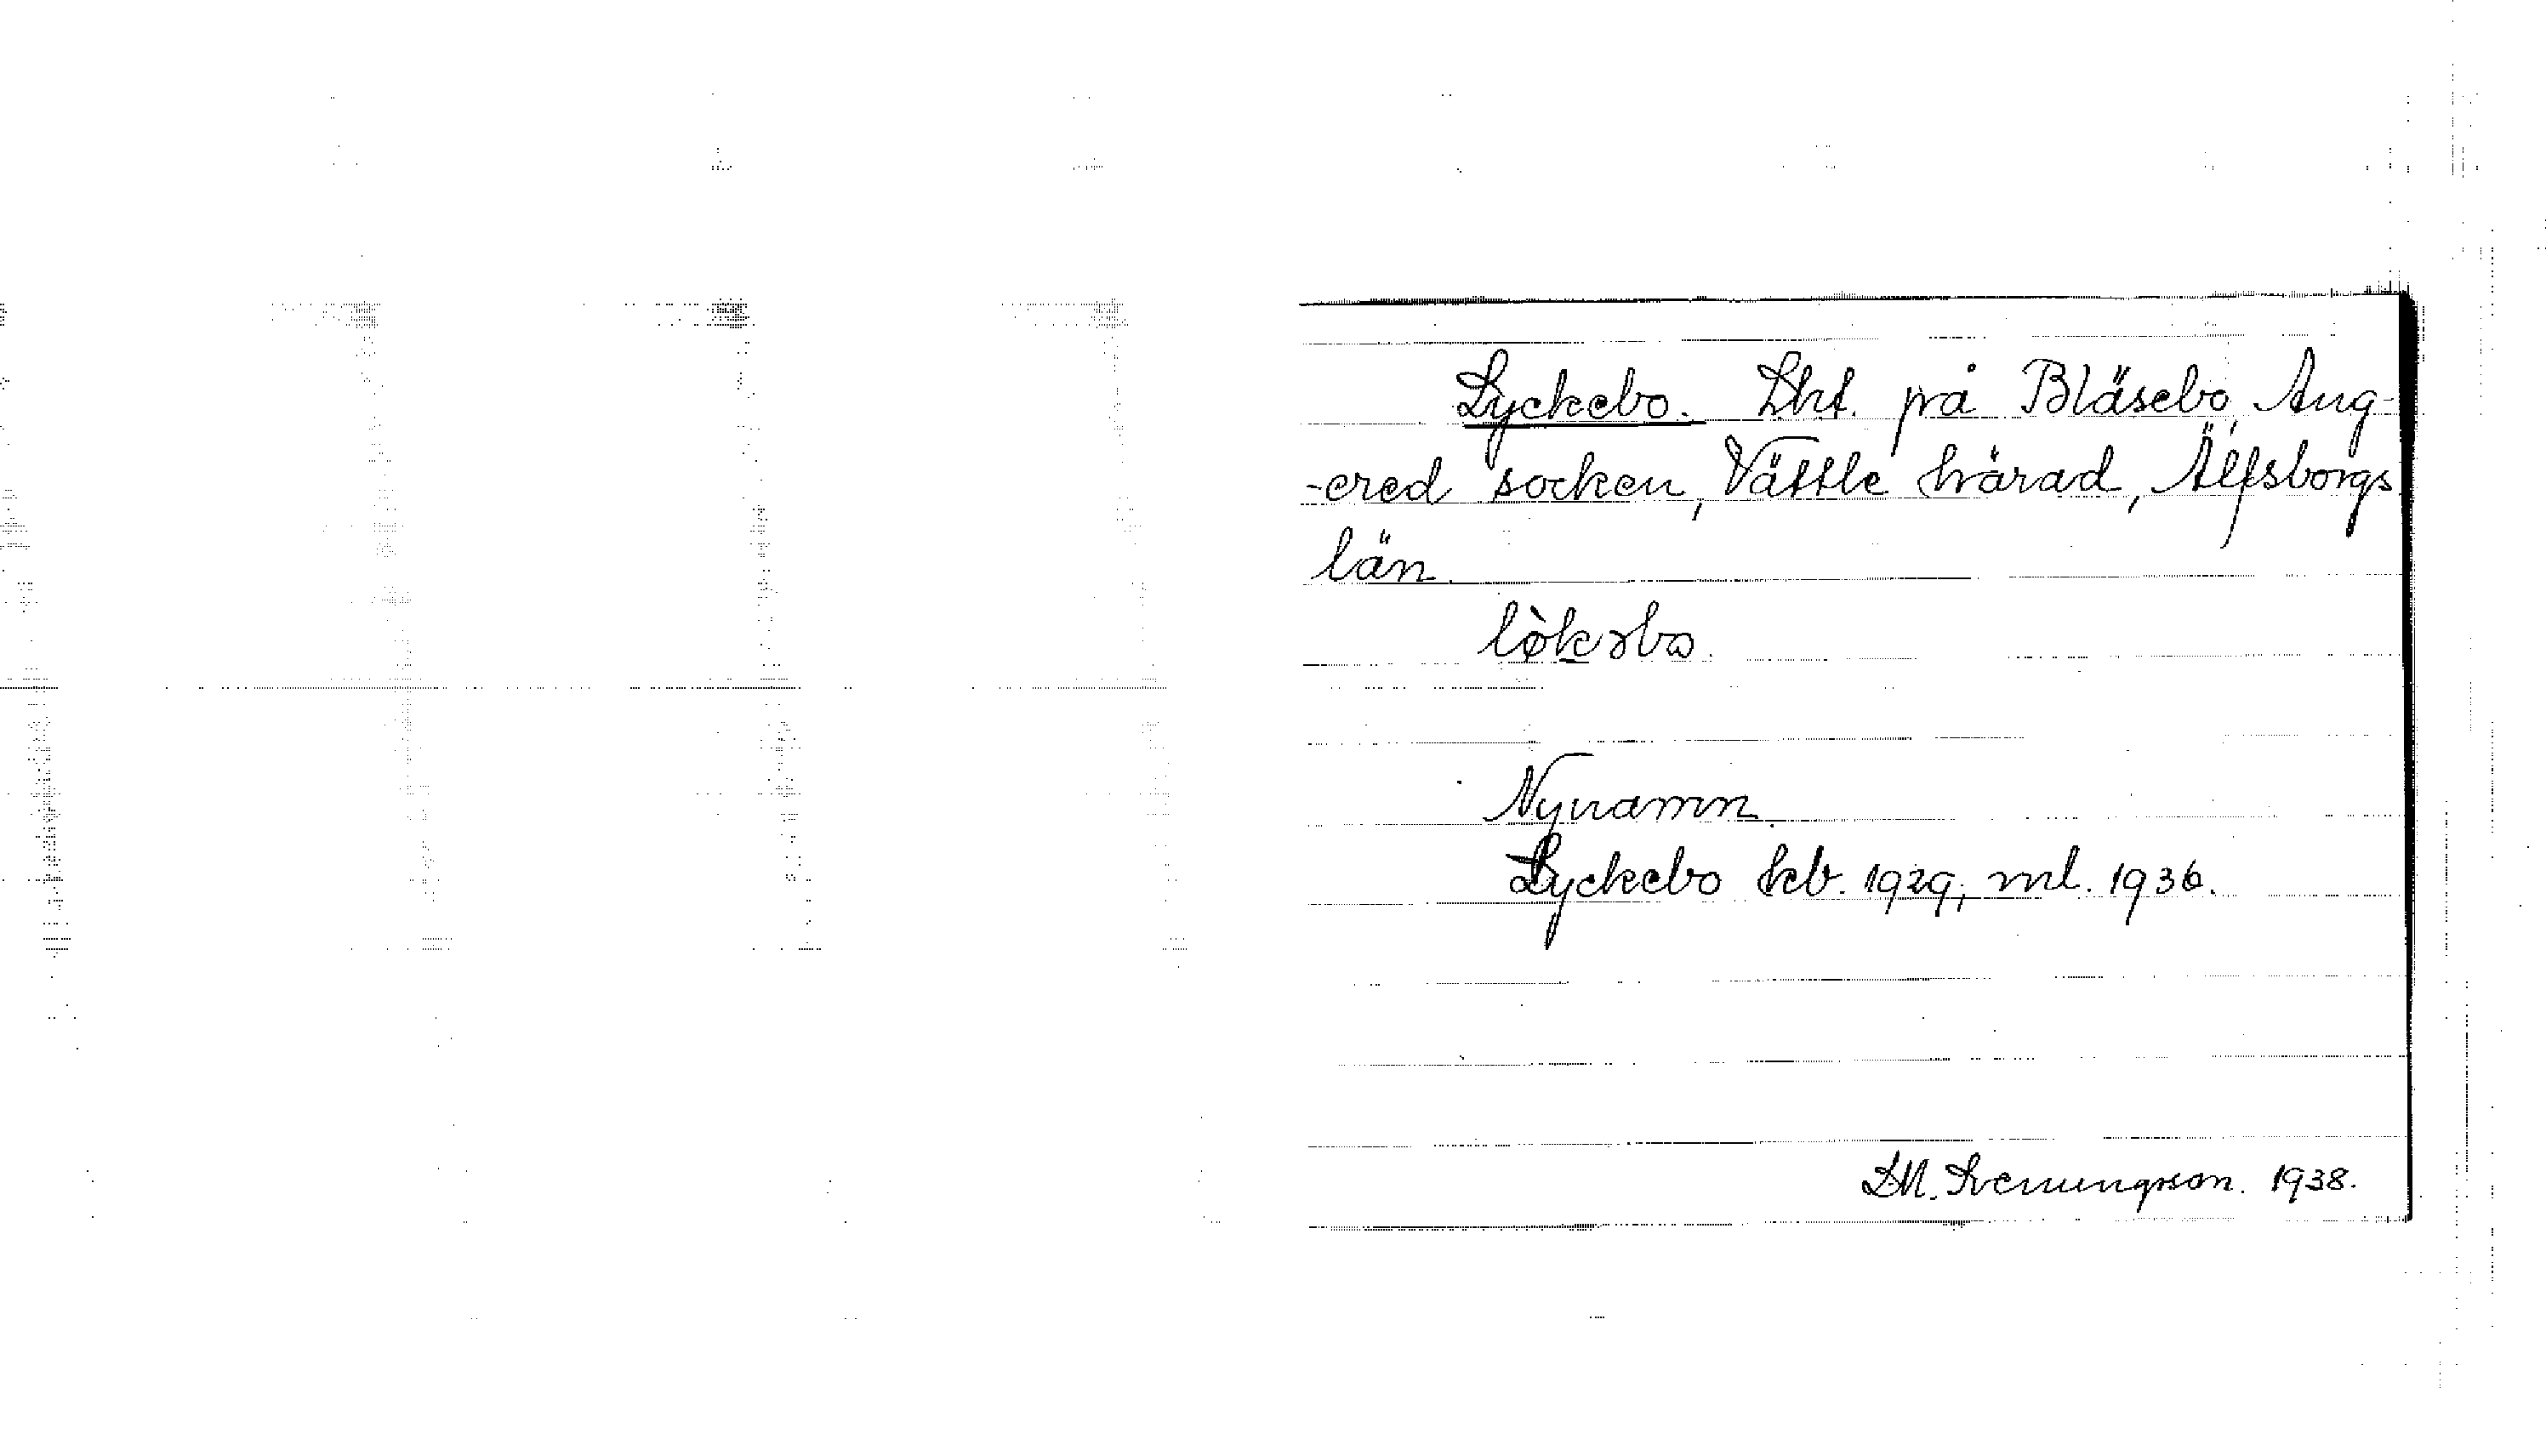 Lyckebo. Lht. på Bläsebo, Ang-
-ered socken, Vättle härad, Älfsborgs
län.
lø̀kəbɷ.
Nynamn.
Lyckebo kb. 1929, ml. 1936.
1938.